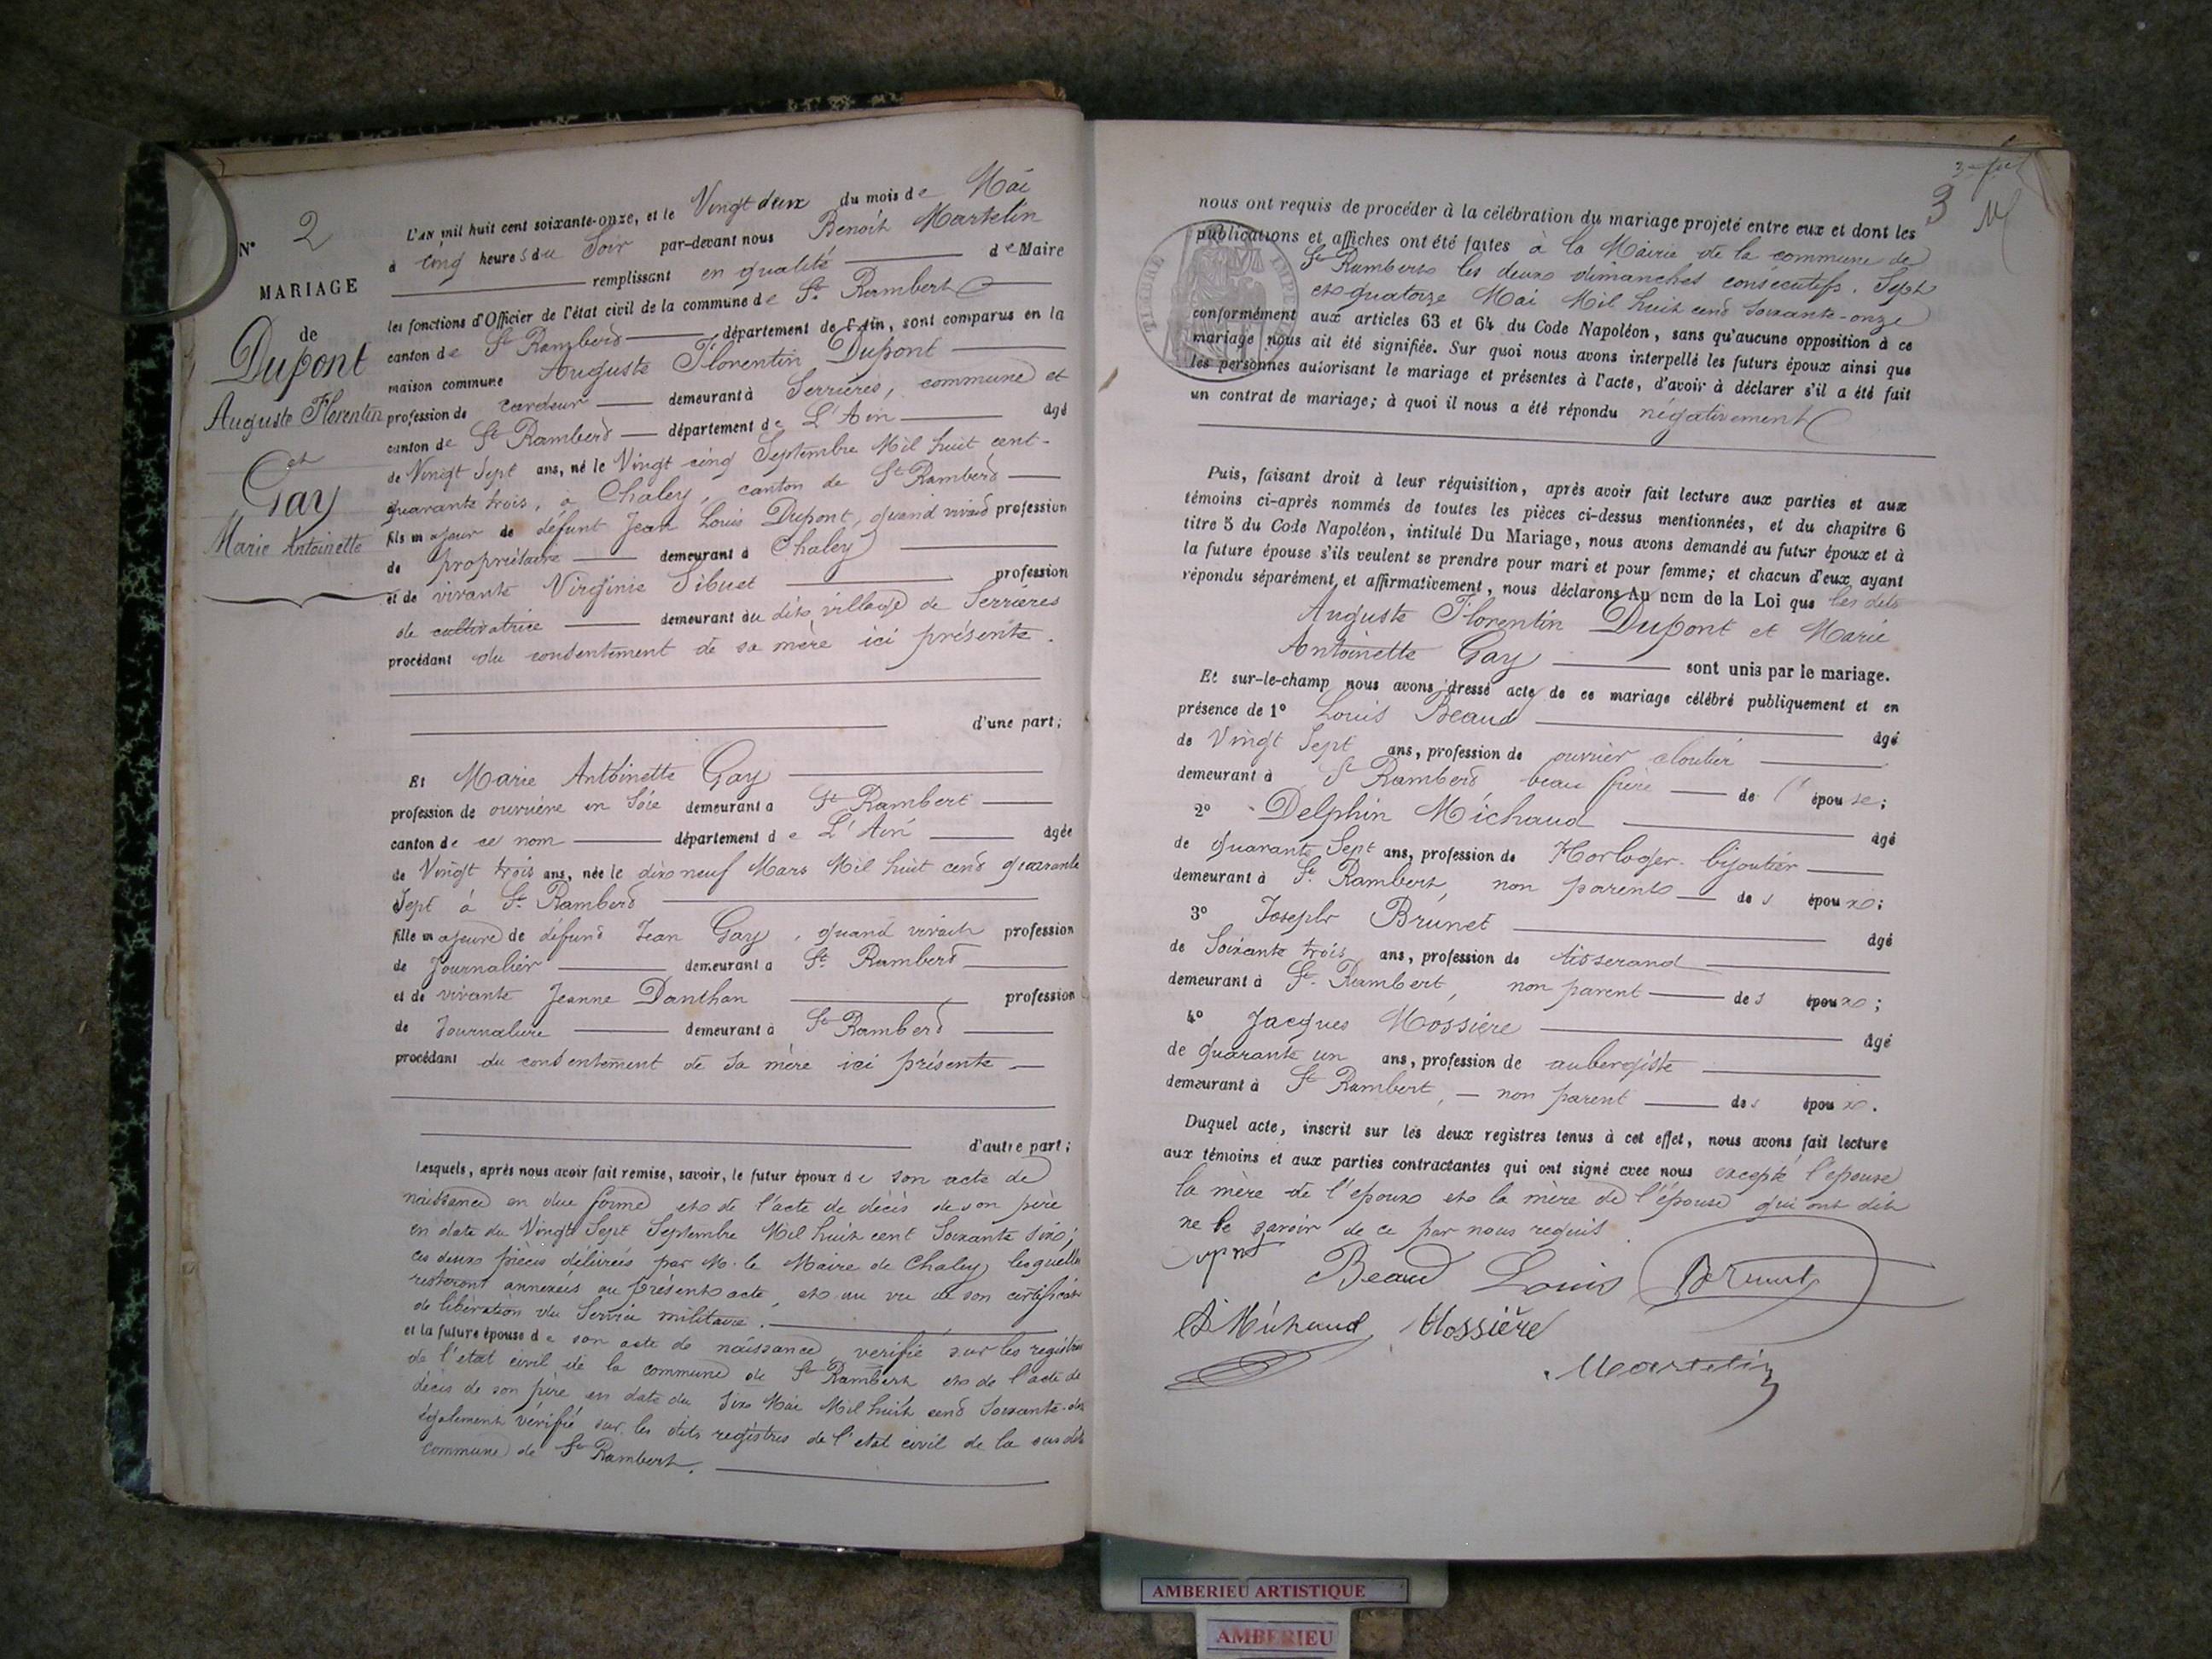 N° 2
MARIAGE
de
Dupont
Auguste Florentin
et
Gay
Marie Antoinette
L'AN mil huit cent soixante-onze, et le Vingt deux du mois de Mai
à cinq heures du Soir par-devant nous Benoit Martelin
remplissant en qualité de Maire
les fonctions d'Officier de l'état civil de la commune de St Rambert
canton de St Rambert département de l'Ain, sont comparus en la
maison commune Auguste Florentin Dupont
profession de cardeur demeurant à Serrières, commune et
canton de St Rambert département de L'Ain âgé
de Vingt Sept ans, né le Vingt cinq Septembre Mil huit cent-
quarante trois, à Chaley, canton de St Rambert
fils majeur de défunt Jean Louis Dupont, quand vivait profession
de propriétaire demeurant à Chaley
et de vivante Virginie Sibuet profession
de cultivatrice demeurant au dit village de Serrières
procédant du consentement de sa mère ici présente.
d'une part;
Et Marie Antoinette Gay
profession de ouvrière en Soie demeurant a St Rambert
canton de ce nom département de L'Ain âgée
de Vingt trois ans, née le dix neuf Mars Mil huit cent quarante
Sept à St Rambert
fille majeure de défunt Jean Gay, quand vivait profession
de Journalier demeurant a St Rambert
et de vivante Jeanne Danthon profession
de Journalière demeurant à St Rambert
procédant du consentement de sa mère ici présente
d'autre part;
Lesquels, après nous avoir fait remise, savoir, le futur époux de son acte de
naissance en due forme et de l'acte de décès de son père
en date du Vingt Sept Septembre Mil huit cent Soixante six;
ces deux pièces délivrées par M. le Maire de Chaley, lesquelles
resteront annexées au présent acte, et au vu de son certificat
de libération du Service militaire.
et la future épouse de son acte de naissance, vérifié sur les registres
de l'état civil de la commune de St Rambert et de l'acte de
décès de son père en date du Six Mai Mil huit cent Soixante
également vérifié sur les dits registres de l'état civil de la sus dite
commune de St Rambert.
3
nous ont requis de procéder à la célébration du mariage projeté entre eux et dont les
publications et affiches ont été faites à la Mairie de la commune de
St Rambert les deux dimanches consécutifs. Sept
et quatorze Mai Mil huit cent soixante-onze
conformément aux articles 63 et 64 du Code Napoléon, sans qu'aucune opposition à ce
mariage nous ait été signifiée. Sur quoi nous avons interpellé les futurs époux ainsi que
les personnes autorisant le mariage et présentes à l'acte, d'avoir à déclarer s'il a été fait
un contrat de mariage; à quoi il nous a été répondu négativement
Puis, faisant droit à leur réquisition, après avoir fait lecture aux parties et aux
témoins ci-après nommés de toutes les pièces ci-dessus mentionnées, et du chapitre 6
titre 5 du Code Napoléon, intitulé Du Mariage, nous avons demandé au futur époux et à
la future épouse s'ils veulent se prendre pour mari et pour femme; et chacun d'eux, ayant
répondu séparément et affirmativement, nous déclarons Au nom de la Loi que les dits
Auguste Florentin Dupont et Marie
Antoinette Gay sont unis par le mariage.
Et sur-le-champ nous avons dressé acte de ce mariage célébré publiquement et en
présence de 1° Louis Beaud âgé
de Vingt Sept ans, profession de ouvrier cloutier
demeurant à St Rambert beau frère de l'épouse;
2° Delphin Michaud âgé
de quarante Sept ans, profession de Horloger-bijoutier
demeurant à St Rambert, non parent des époux;
3° Joseph Brunet âgé
de Soixante trois ans, profession de tisserand
demeurant à St Rambert, non parent des époux;
4° Jacques Mossière âgé
de quarante un ans, profession de aubergiste
demeurant à St Rambert, non parent des époux.
Duquel acte, inscrit sur les deux registres tenus à cet effet, nous avons fait lecture
aux témoins et aux parties contractantes qui ont signé avec nous excepté l'épouse
la mère de l'époux et la mère de l'épouse qui ont dit
ne le savoir de ce par nous requis.
Beaud Louis Brunet
Michaud Mossière
Martelin
TIMBRE IMPÉ
AMBERIEU ARTISTIQUE
AMBERIEU